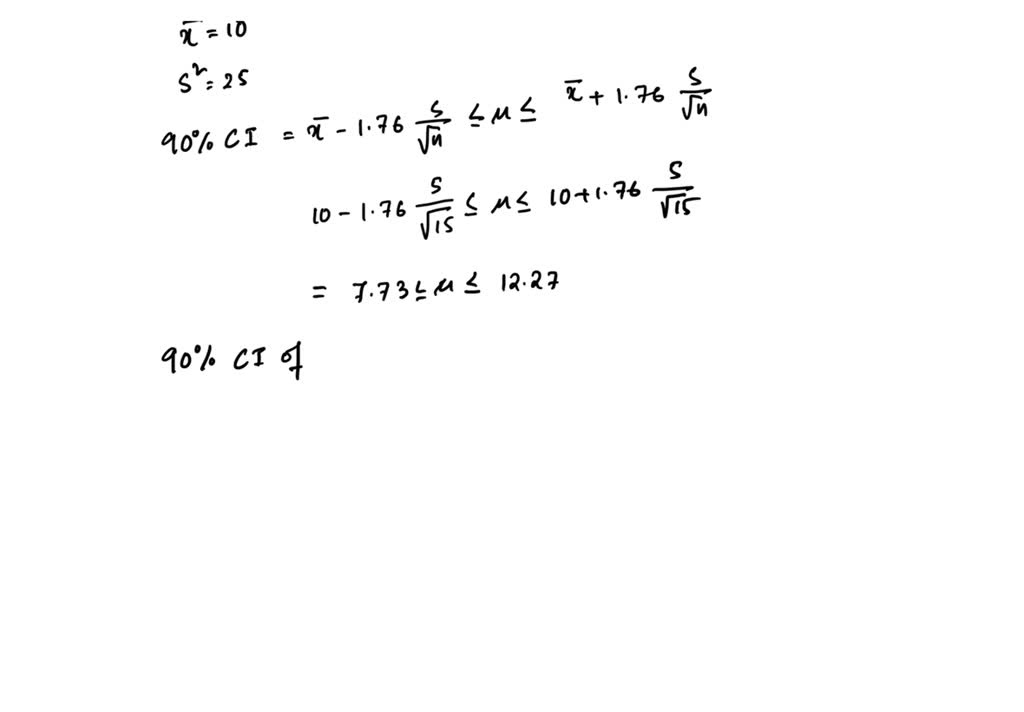 x̄ = 10
S² = 25
90% CI = x̄ - 1.76 S/√n ≤ μ ≤ x̄ + 1.76 S/√n
10 - 1.76 5/√15 ≤ μ ≤ 10 + 1.76 5/√15
= 7.73 ≤ μ ≤ 12.27
90% CI of